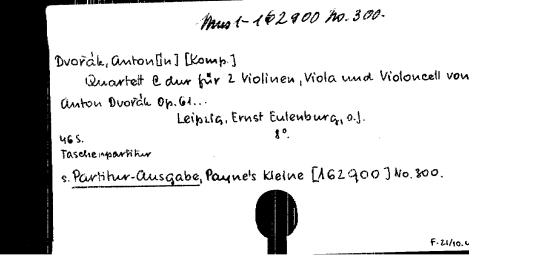 Mus 1-162900 No. 300.
Dvořák, Anton[in] [Komp.]
Quartett C dur für 2 Violinen, Viola und Violoncell von
Anton Dvořák Op. 61...
Leipzig, Ernst Eulenburg, o.J.
46 S. 8°.
Taschenpartitur
s. Partitur-Ausgabe, Payne's Kleine [162900] No. 300.
F. 21/10.